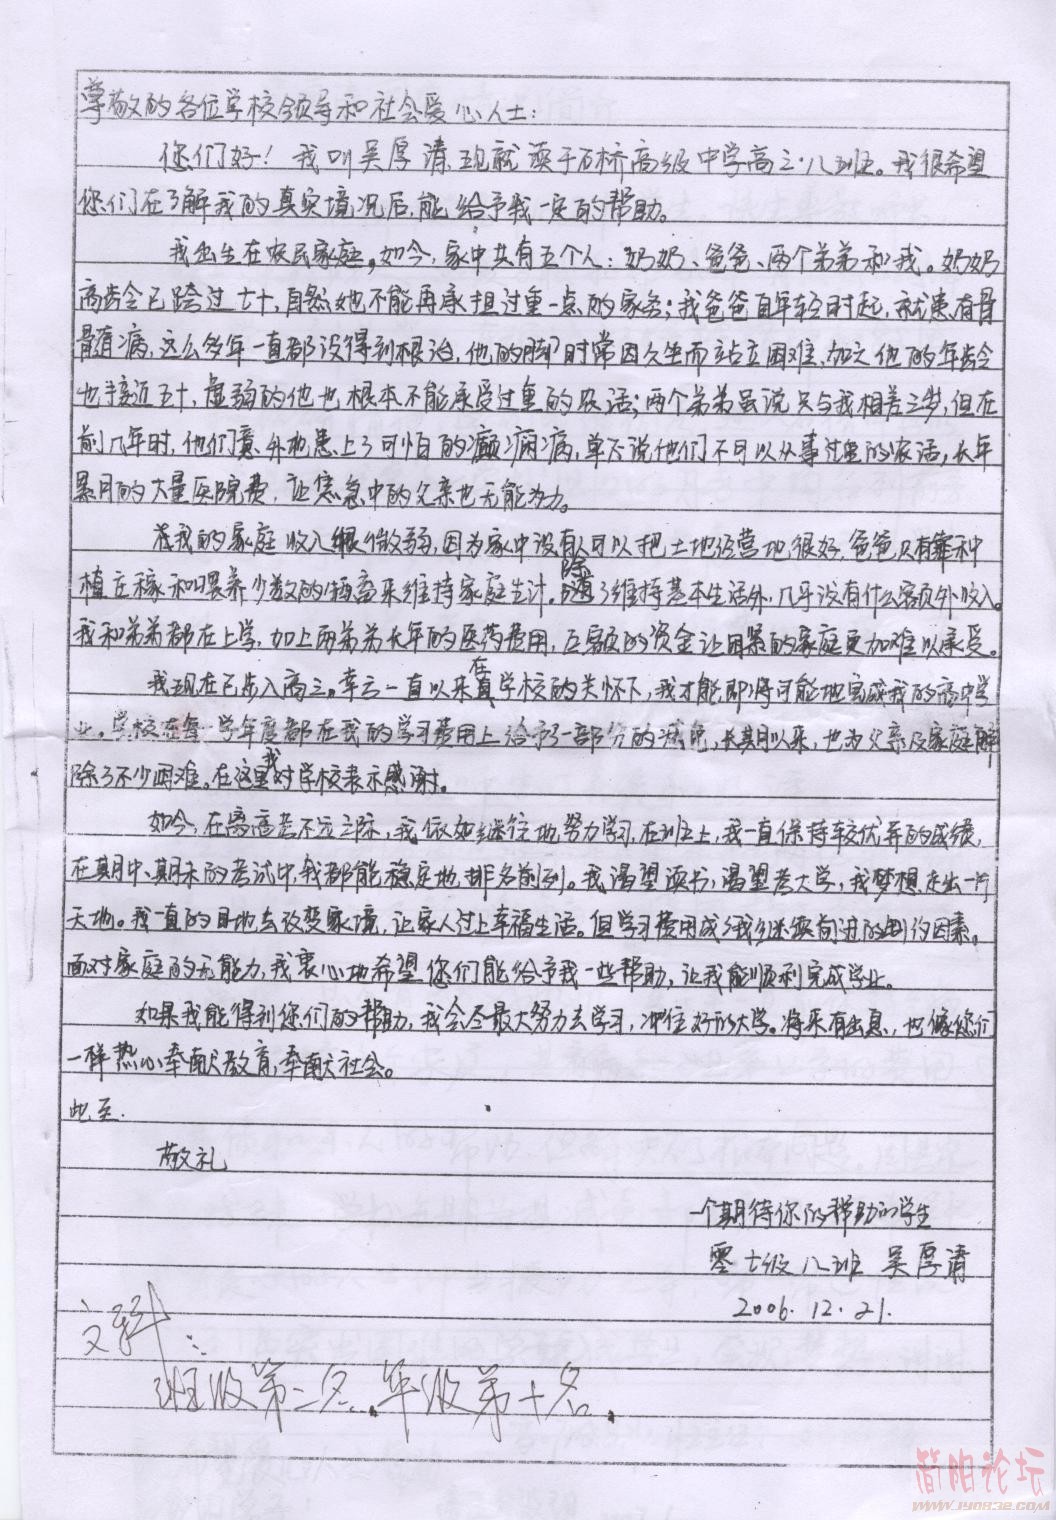 尊敬的各位学校领导和社会爱心人士:
您们好!我叫吴厚清,现就读于石桥高级中学高三·八班。我很希望
您们在了解我的真实境况后,能给予我一定的帮助。
我出生在农民家庭。如今,家中共有五个人:奶奶、爸爸、两个弟弟和我。奶奶
高龄令已跨过七十,自然她不能再承担过重一点的家务;我爸爸自年轻时起,就患有骨
髓病,这么多年一直都没得到根治,他的脚时常因久坐而站立困难,加之他的年龄
也接近五十,虚弱的他也根本不能承受过重的农活;两个弟弟虽说只与我相差三岁,但在
前几年时,他们意外地患上了可怕的癫痫病,单不说他们不可以从事过重的农活,长年
累月的大量医院费,让焦急中的父亲也无能为力。
我的家庭收入很微弱,因为家中没有人可以把土地经营地很好,爸爸只有靠种
植庄稼和喂养少数的牲畜来维持家庭生计。除了维持基本生活外,几乎没有什么额外收入。
我和弟弟都在上学,加上两弟弟长年的医药费用,巨额的资金让困累的家庭更加难以承受。
我现在已步入高三。幸之一直以来在学校的关怀下,我才能即将可能地完成我的高中学
业。学校在每学年度都在我的学习费用上给予一部分的减免,长期以来,也为父亲及家庭解
除了不少困难。在这里我对学校表示感谢。
如今,在离高考不远之际,我依如继往地努力学习,在班上,我一直保持较优异的成绩,
在期中、期末的考试中,我都能稳定地排名前列。我渴望读书,渴望考大学,我梦想走出一片
天地。我一直的目地去改变家境,让家人过上幸福生活。但学习费用成了我继续前进的制约因素。
面对家庭的无能力,我衷心地希望您们能给予我一些帮助,让我能顺利完成学业。
如果我能得到您们的帮助,我会尽最大努力去学习,冲往好的大学。将来有出息,也像您们
一样热心奉献教育,奉献社会。
此至.
敬礼
一个期待你的帮助的学生
零七级八班 吴厚清
2006.12.21.
文科:
班级第二名.年级第十名.
简阳论坛
WWW.JY0832.COM